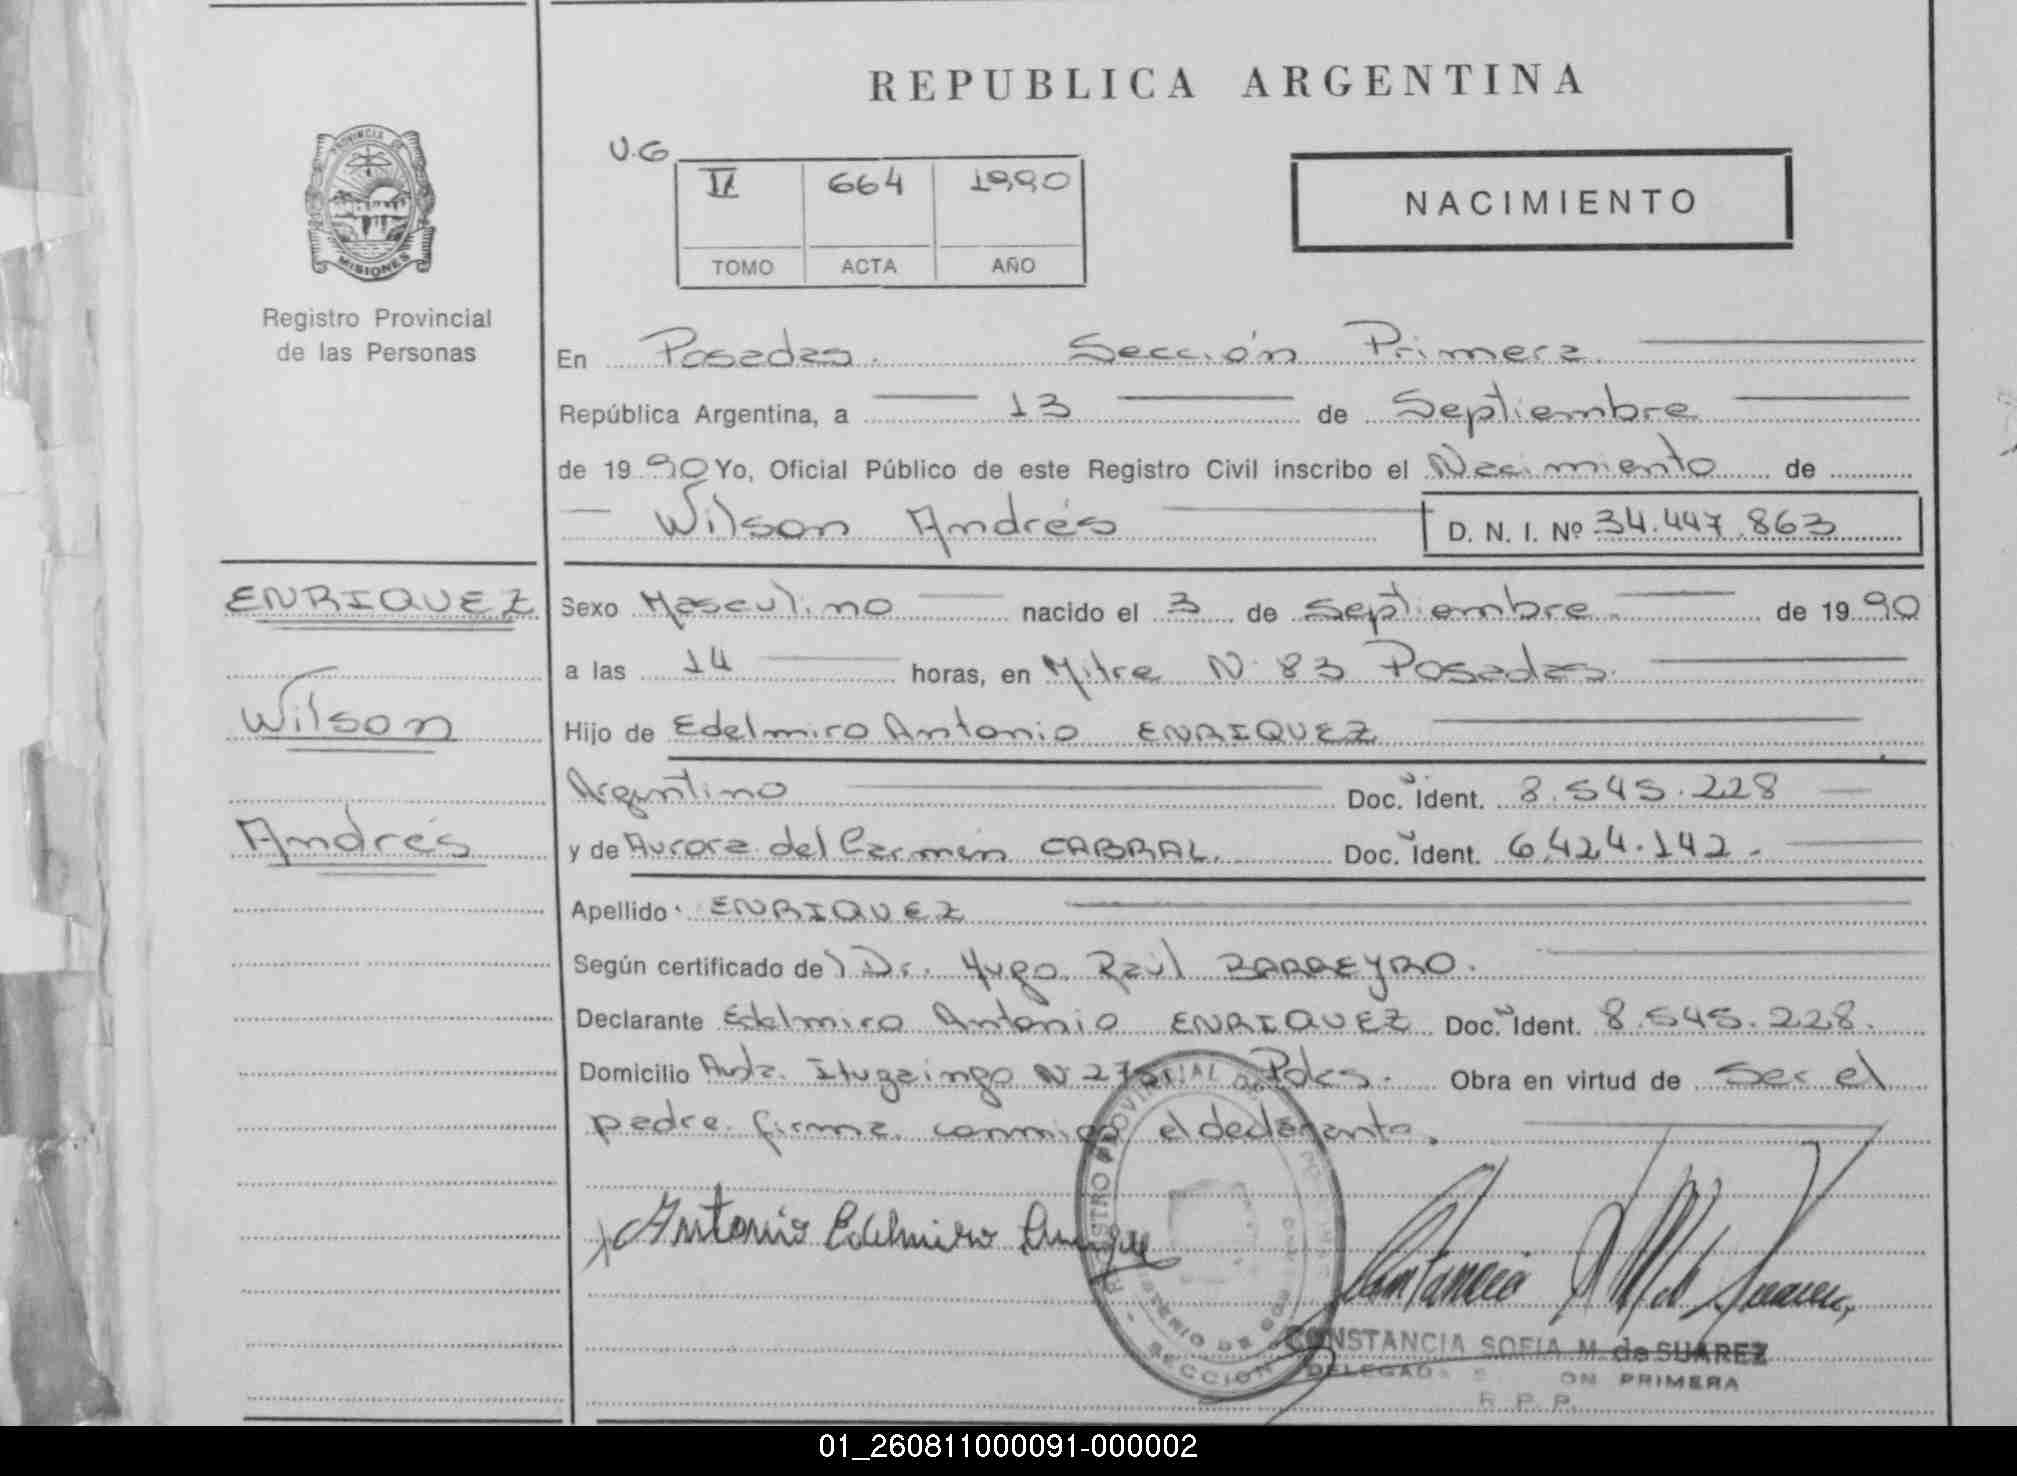 REPUBLICA ARGENTINA
PROVINCIA DE
MISIONES
Registro Provincial
de las Personas
U.G
II 664 1990
TOMO ACTA AÑO
NACIMIENTO
En Posadas. Sección Primera.
República Argentina, a 13 de Septiembre
de 1990 Yo, Oficial Público de este Registro Civil inscribo el Nacimiento de
Wilson Andrés D. N. I. Nº 34.447.863
ENRIQUEZ
Wilson
Andrés
Sexo Masculino nacido el 3 de Septiembre. de 1990
a las 14 horas, en Mitre N. 83 Posadas.
Hijo de Edelmiro Antonio ENRIQUEZ
Argentino Doc. Ident. 8.545.228
y de Aurora del Carmen CABRAL. Doc. Ident. 6.424.142.
Apellido ENRIQUEZ
Según certificado de Dr. Hugo Raúl BARREYRO.
Declarante Edelmiro Antonio ENRIQUEZ Doc. Ident. 8.545.228.
Domicilio Avda. Ituzaingo N Pdas. Obra en virtud de Ser el
padre. firma conmigo el declarante.
Antonio Edelmiro
Constancia
CONSTANCIA SOFIA M. de SUAREZ
PRIMERA
R. P. P.
01_260811000091-000002